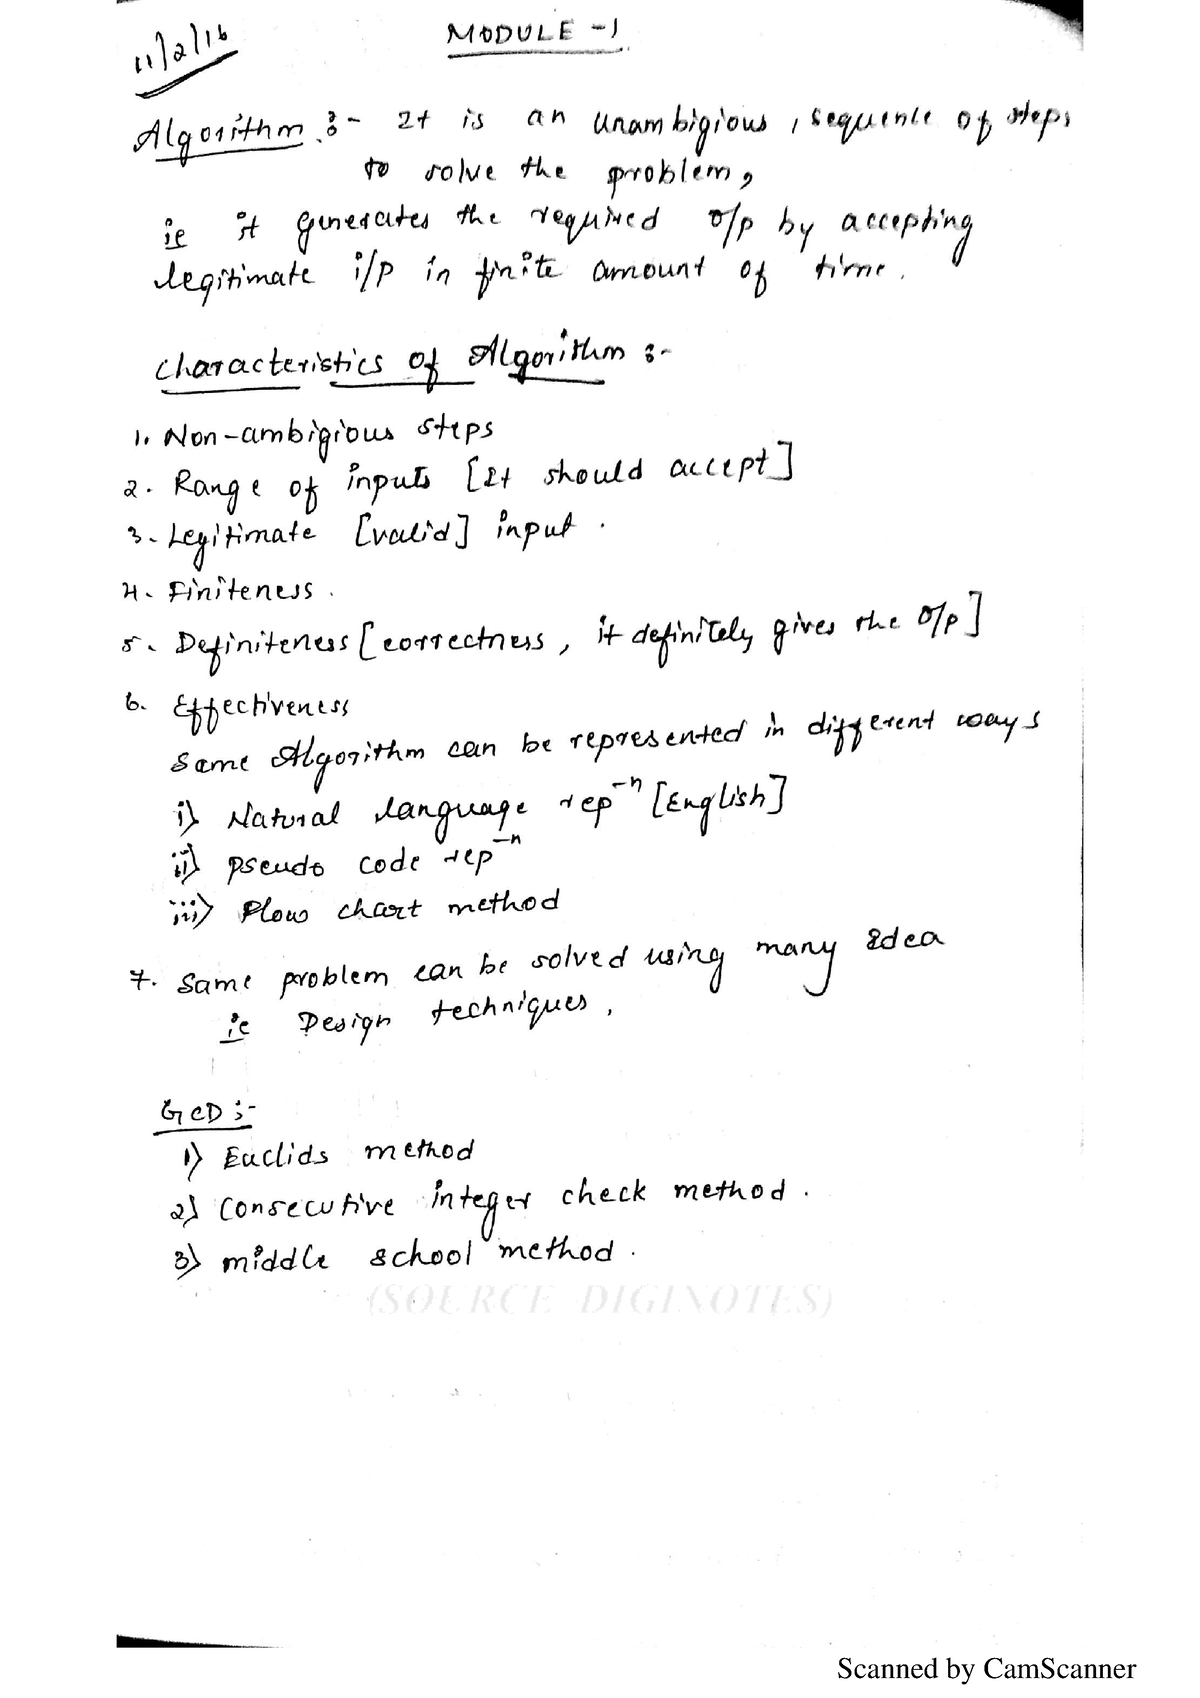 11/2/16
MODULE -1
Algorithm :- It is an unambigious, sequence of steps
to solve the problem,
ie it generates the required o/p by accepting
legitimate i/p in finite amount of time.
characteristics of Algorithm :-
1. Non-ambigious steps
2. Range of inputs [It should accept]
3. Legitimate [valid] input.
4. Finiteness.
5. Definiteness [correctness, it definitely gives the o/p]
6. Effectiveness
Same Algorithm can be represented in different ways
i) Natural language rep⁻ⁿ [English]
ii) pseudo code rep⁻ⁿ
iii) Flow chart method
7. Same problem can be solved using many Idea
ie Design techniques.
GCD :-
1) Euclids method
2) Consecutive integer check method.
3) middle school method.
(SOURCE DIGINOTES)
Scanned by CamScanner